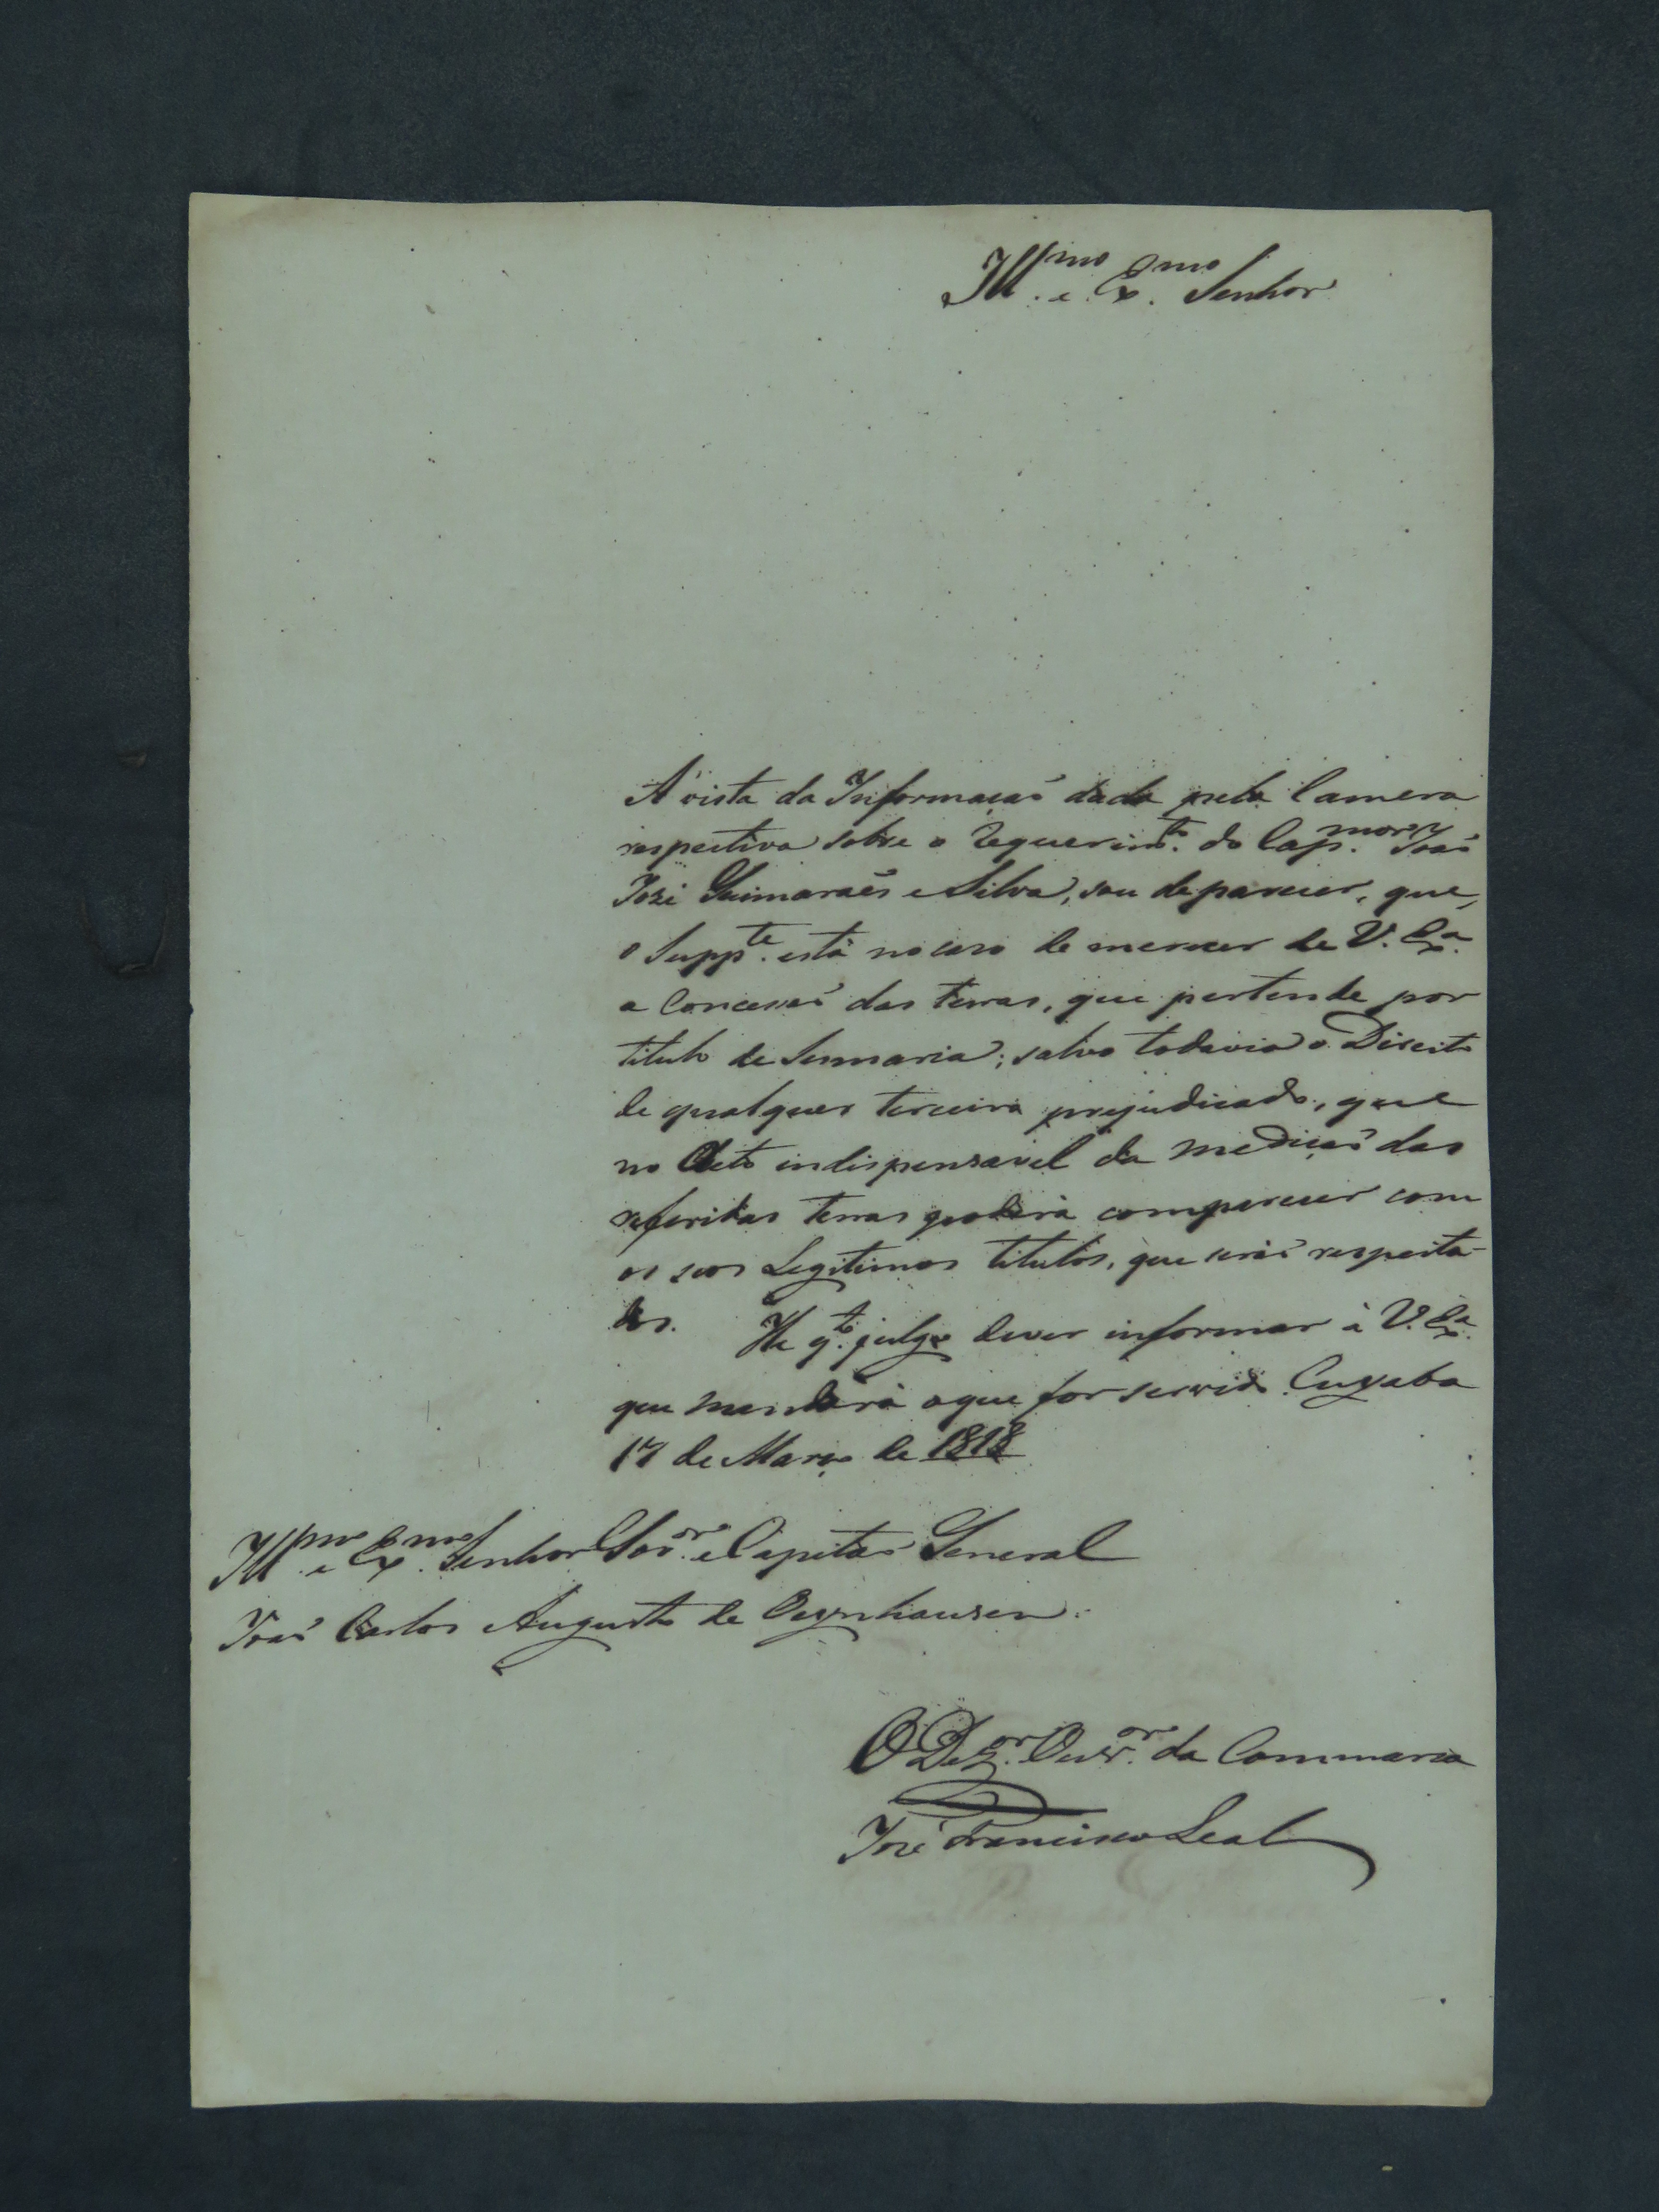 Ill.mo e Ex.mo Senhor
A' vista da Informaçaõ dada pela Camera
respectiva sobre o Requerim.to do Cap.mor Joaõ
Jozé Guimaraẽs e Silva, sou de parecer, que,
o Supp.te está no caso de merecer de V. Ex.a
a Concessaõ das terras, que pertende por
titulo de Sesmaria; salvo todavia o Direito
de qualquer terceiro prejudicado, que
no Acto indispensavel da mediçaõ das
referidas terras poderá comparecer com
os seos Legitimos titulos, que seraõ respeita-
dos. He q.to julgo dever informar à V. Ex.a
que mandará o que for servido. Cuyaba
17 de Março de 1818
Ill.mo e Ex.mo Senhor Gov.or e Capitaõ General
Joaõ Carlos Augusto de Oeynhausen.
O Dez.or Ouv.or da Commarca
Jozé Francisco Leal